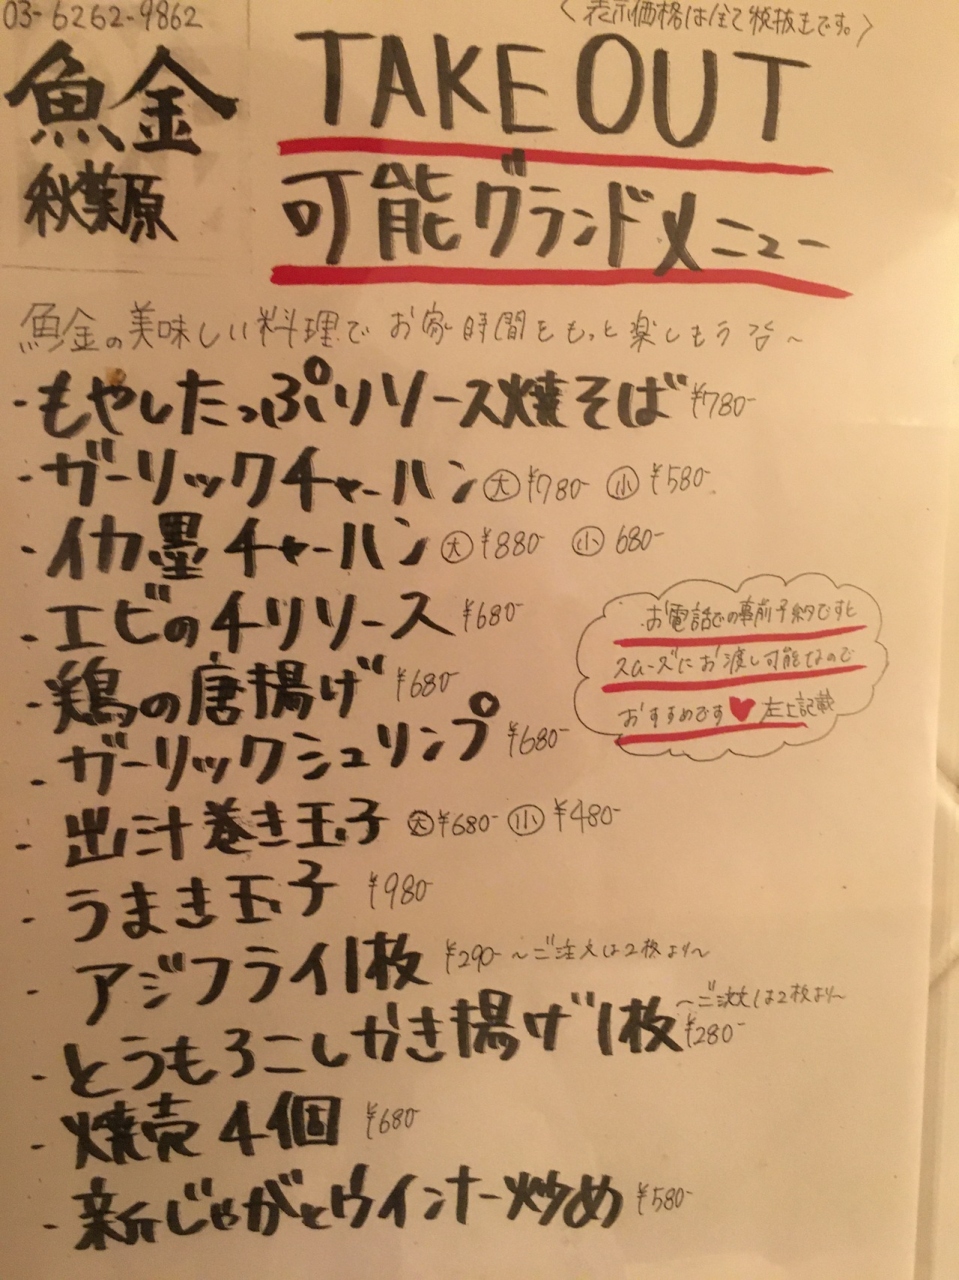 03-6262-9862
〈表示価格は全て税抜きです。〉
魚金
秋葉原
TAKE OUT
可能グランドメニュー
魚金の美味しい料理で お家時間をもっと楽しもう
・もやしたっぷりソース焼そば ¥780-
・ガーリックチャーハン 大 ¥780- 小 ¥580-
・イカ墨チャーハン 大 ¥880- 小 680-
・エビのチリソース ¥680-
・鶏の唐揚げ ¥680-
・ガーリックシュリンプ ¥680-
・出汁巻き玉子 大 ¥680- 小 ¥480-
・うまき玉子 ¥980-
・アジフライ1枚 ¥290- ~ご注文は2枚より~
・とうもろこしかき揚げ1枚 ¥280- ~ご注文は2枚より~
・焼売4個 ¥680-
・新じゃがとウインナー炒め ¥580-
お電話での事前予約ですと
スムーズにお渡し可能なので
おすすめです♥ 左上記載